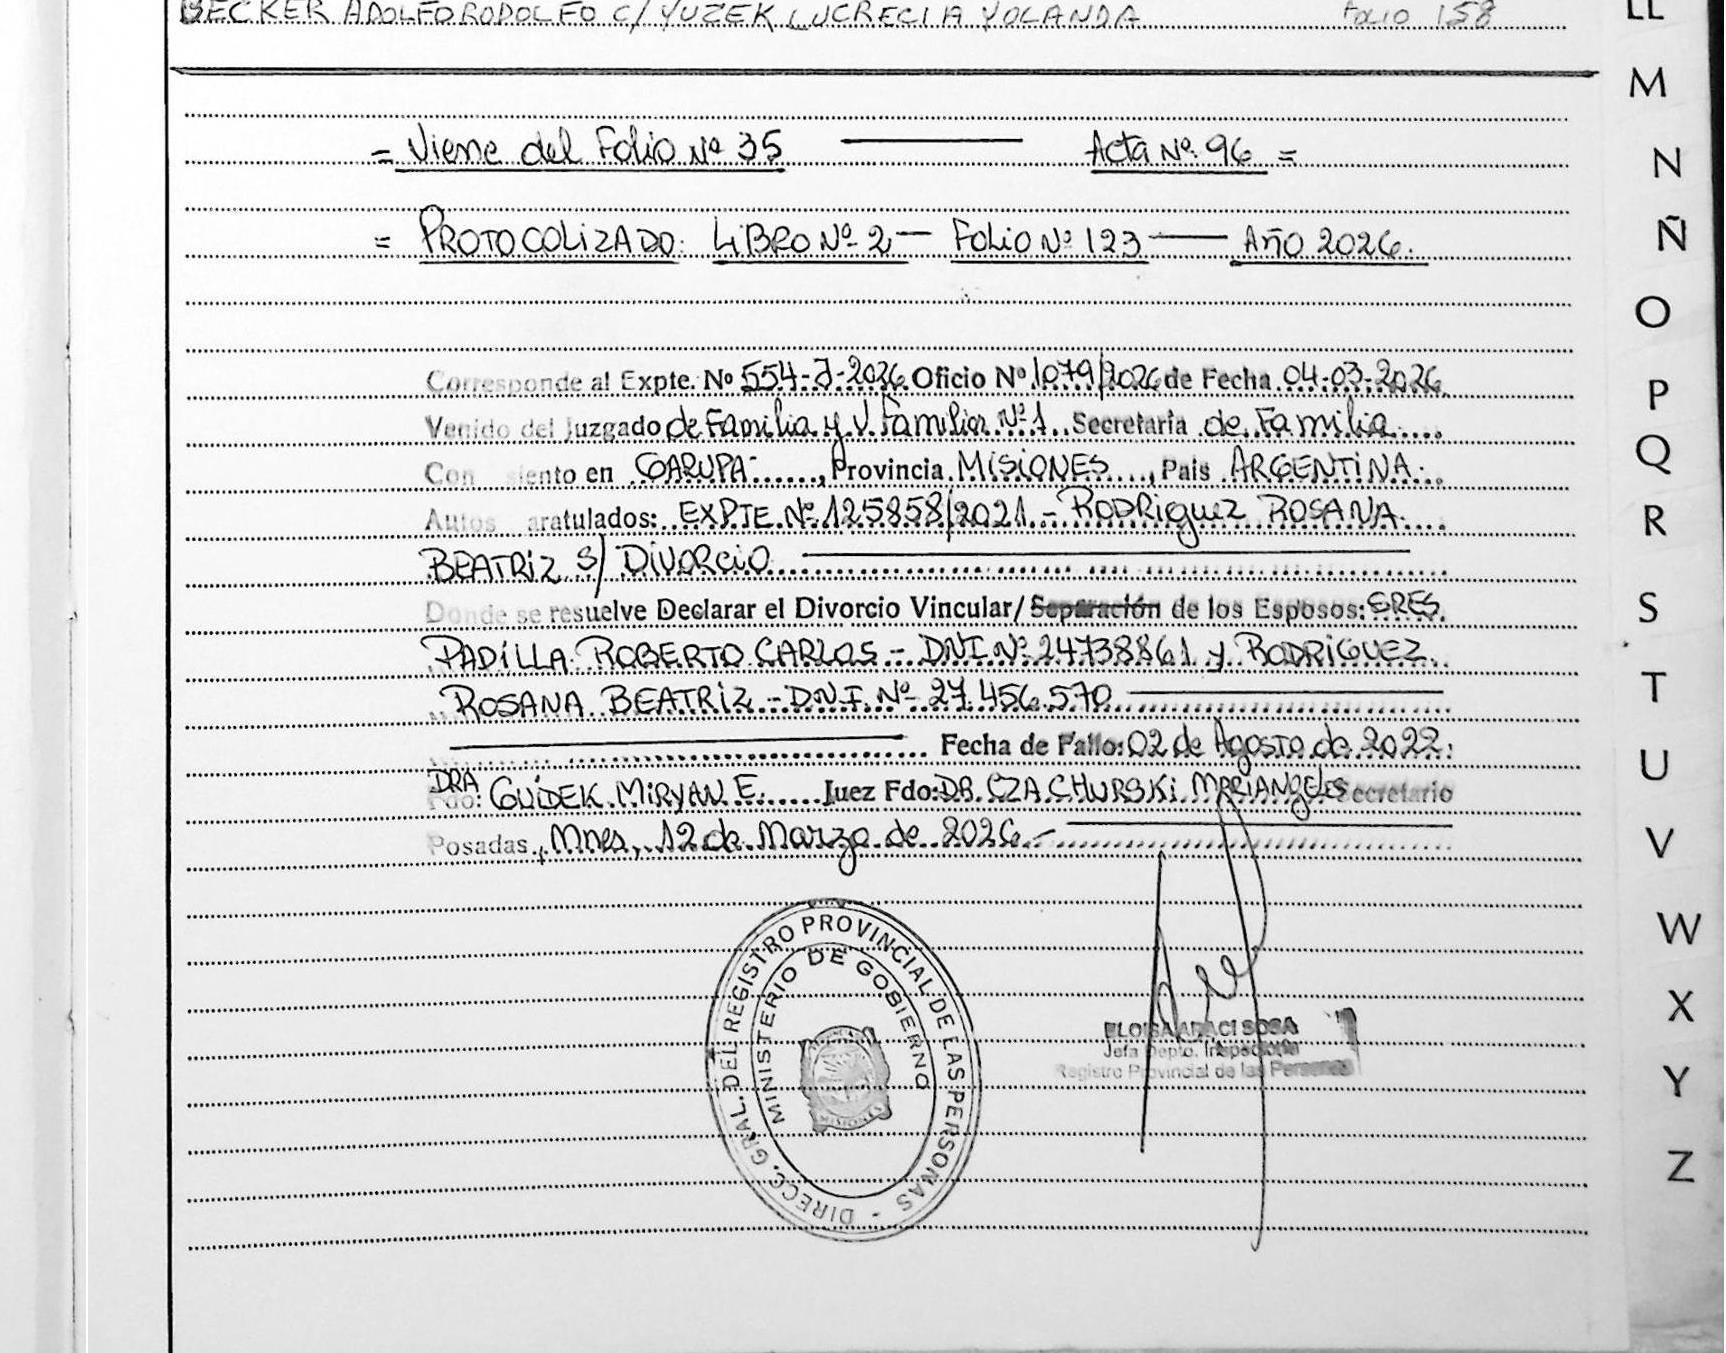 BECKER ADOLFO RODOLFO C/ YUZEK LUCRECIA YOLANDA Folio 158
= Viene del Folio Nº 35 — Acta Nº 96 =
= PROTOCOLIZADO: LIBRO Nº 2 — FOLIO Nº 123 — AÑO 2026.
Corresponde al Expte. Nº 554-J-2026 Oficio Nº 1079/2026 de Fecha 04-03-2026
Venido del Juzgado de Familia y V. Familiar Nº 1 Secretaria de Familia
Con siento en GARUPA, Provincia MISIONES, Pais ARGENTINA.
Autos aratulados: EXPTE Nº 125858/2021 - RODRIGUEZ ROSANA
BEATRIZ S/ DIVORCIO
Donde se resuelve Declarar el Divorcio Vincular/ Separación de los Esposos: SRES
PADILLA ROBERTO CARLOS - DNI Nº 24738861 y RODRIGUEZ
ROSANA BEATRIZ - DNI Nº 27.456.570
Fecha de Fallo: 02 de Agosto de 2022.
Fdo: DRA GUIDEK MIRYAN E. Juez Fdo: DR. CZACHURSKI MARIANGELES Secretario
Posadas, Mnes, 12 de Marzo de 2026.-
DIRECC. GRAL. DEL REGISTRO PROVINCIAL DE LAS PERSONAS -
MINISTERIO DE GOBIERNO
ELOISA ARACI SOSA
Jefa Depto. Inspectoria
Registro Provincial de las Personas
LL
M
N
Ñ
O
P
Q
R
S
T
U
V
W
X
Y
Z